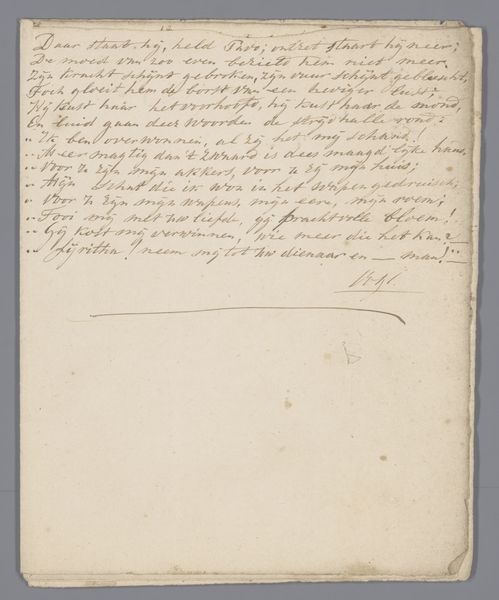 Daar staat hij, held Thio; ontzet staart hij neer;
De moed van zoo even bezielt hem niet meer.
Zijn kracht schijnt gebroken, zijn vuur schijnt gebluscht,
Toch gloeit hem de borst van een heviger lust:
Hij kust haar het voorhoofd, hij kust haar de mond,
En luid gaan deez' woorden de strijdhalle rond:
„ Ik ben overwonnen, al zij het mij schand!
„ Meer magtig dan 't zwaard is deez maagdlijke hand.
„ Voor u zijn mijn akkers, voor u zij mijn huis;
„ Mijn schat die ik won in het wapengedruisch;
„ Voor u zijn mijn wapens, mijn eere, mijn roem;
„ Tooi mij met uw liefde, gij prachtvolle bloem!
„ Gij kost mij verwinnen, wie meer die het kan?
„ neem mij tot uw dienaar en — man!"
B